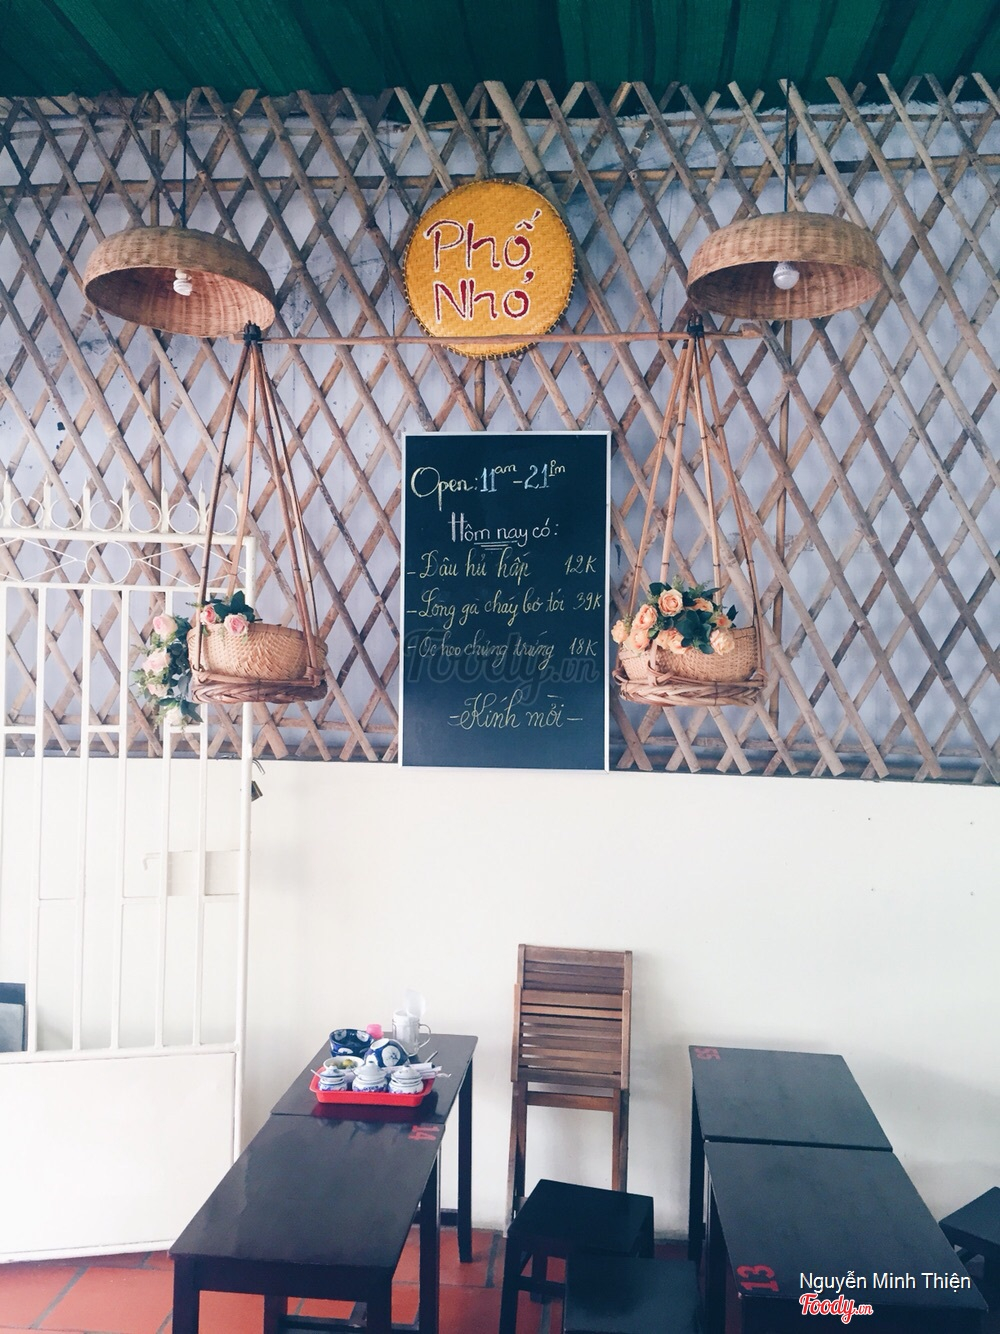 Phố
Nhỏ
Open: 11am - 21pm
Hôm nay có:
- Đậu hủ hấp 12K
- Lòng gà cháy bơ tỏi 39K
- Óc heo chưng trứng 18K
- Kính mời -
Foody.vn
14
13
Nguyễn Minh Thiện
Foody.vn